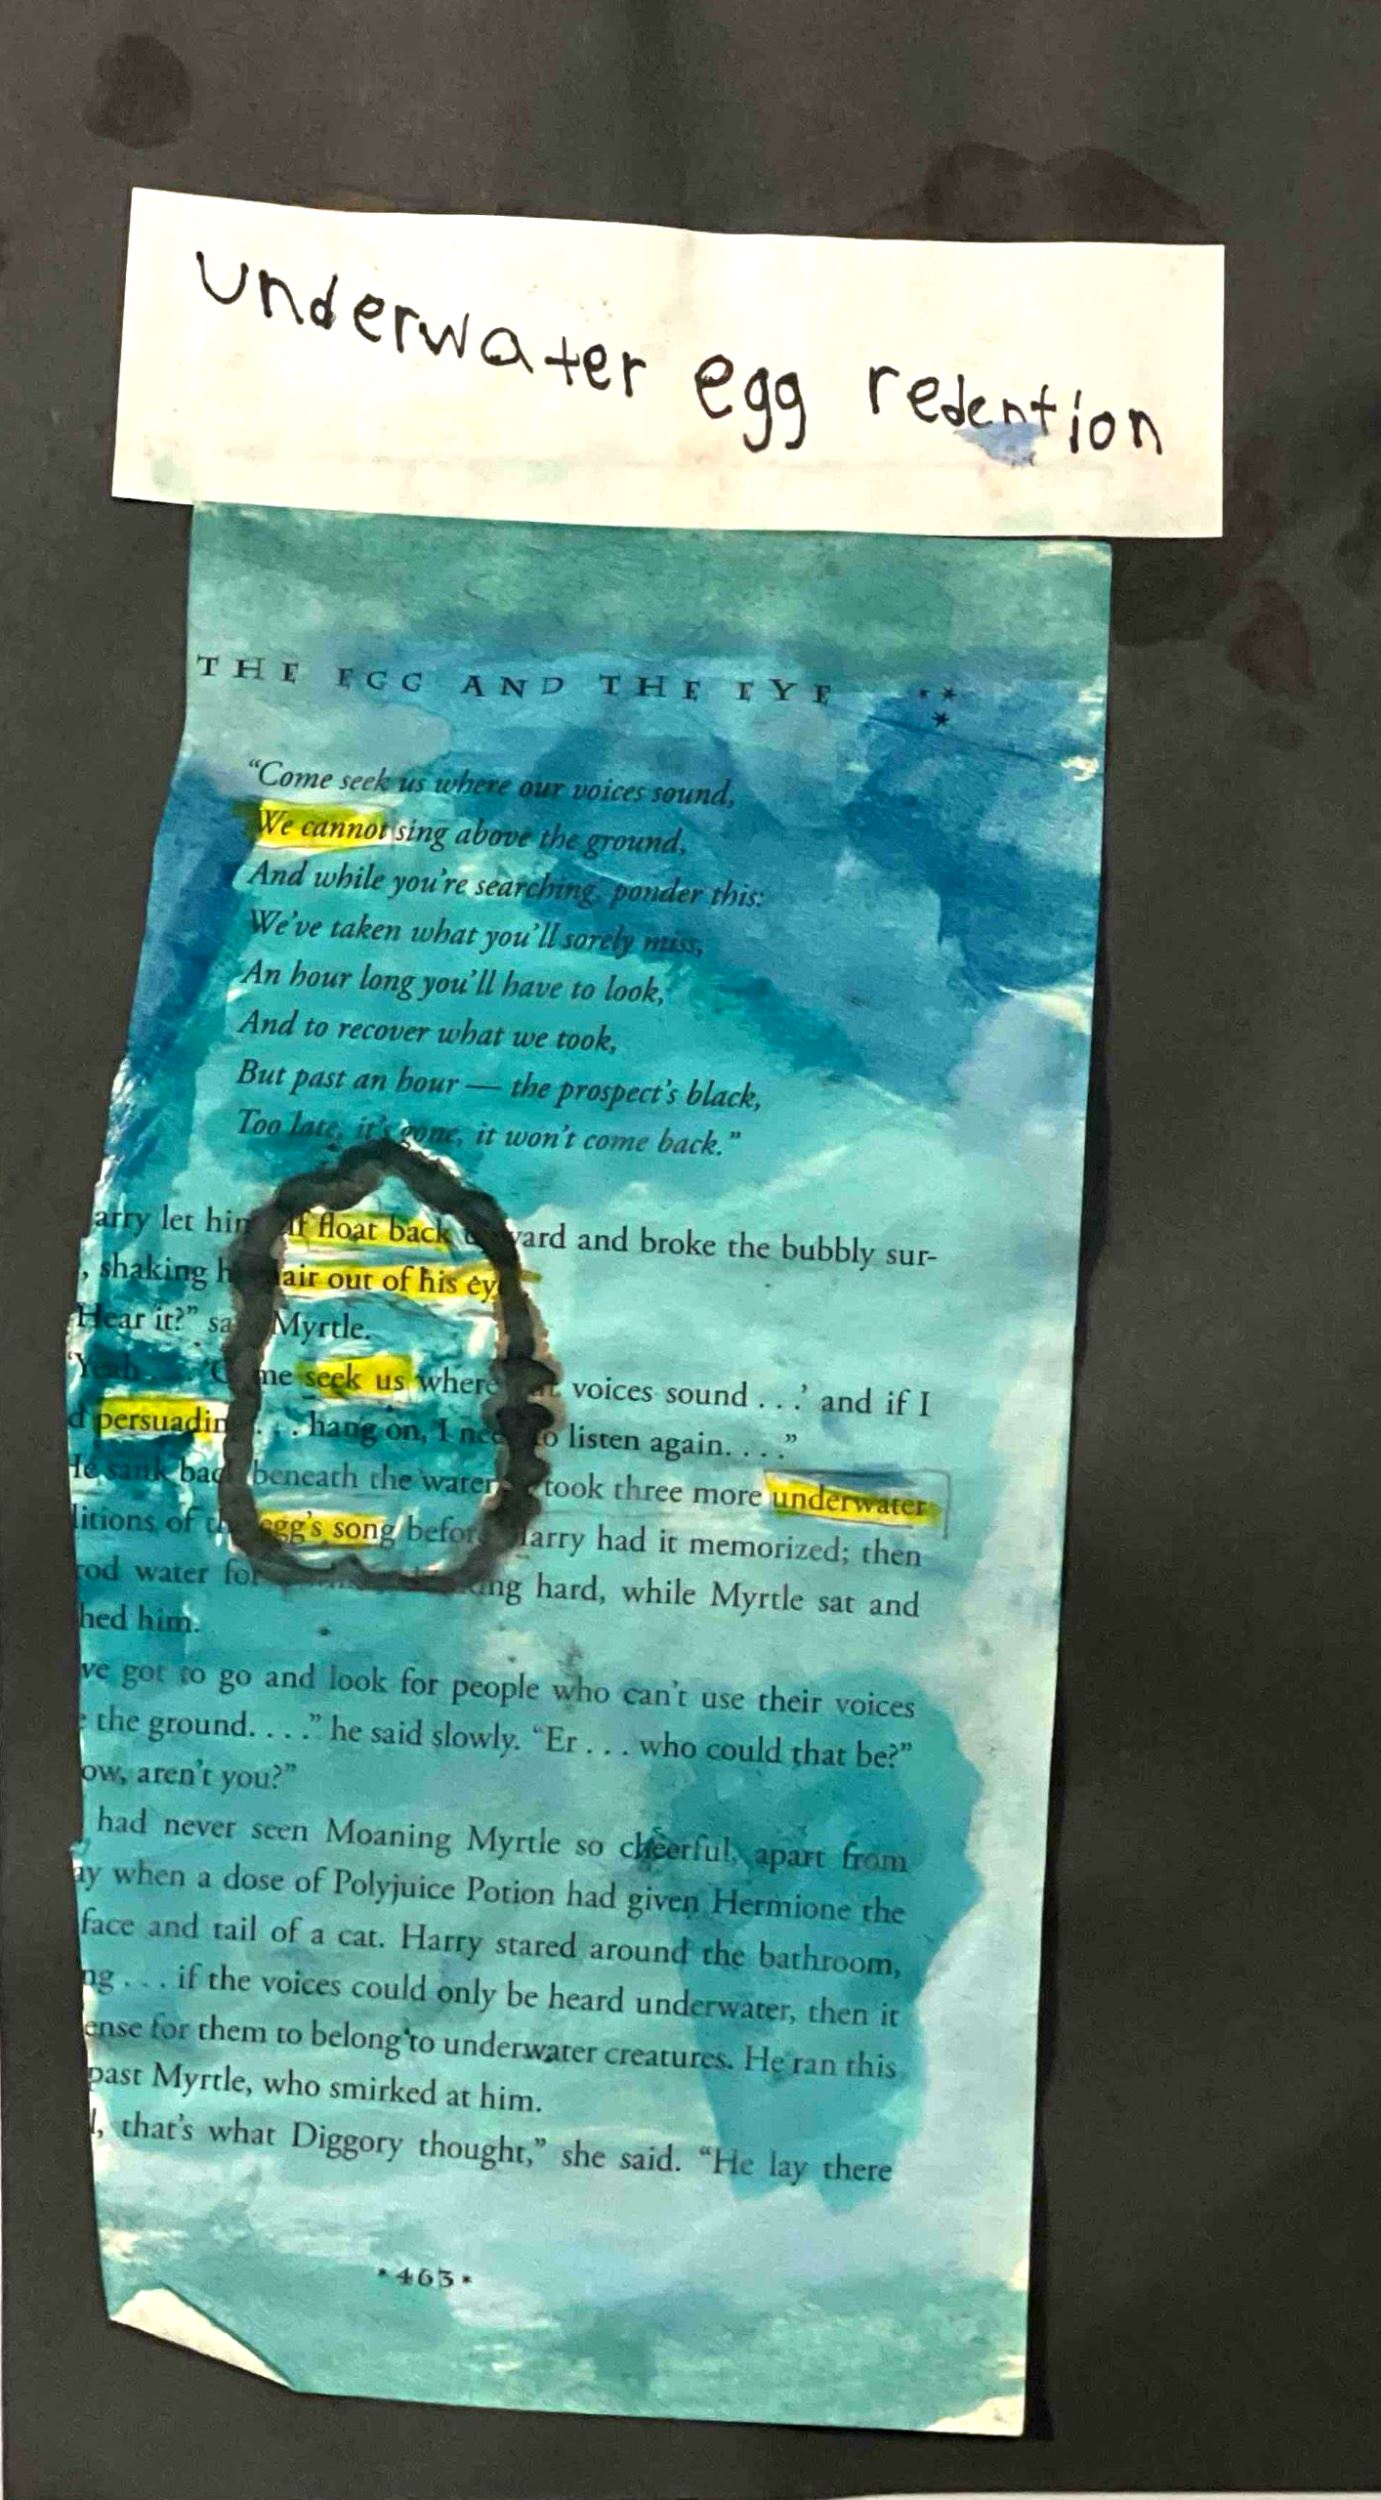 underwater egg redention
THE EGG AND THE EYE
“Come seek us where our voices sound,
We cannot sing above the ground,
And while you’re searching, ponder this:
We’ve taken what you’ll sorely miss,
An hour long you’ll have to look,
And to recover what we took,
But past an hour — the prospect’s black,
Too late, it’s gone, it won’t come back.”
arry let him lf float back ard and broke the bubbly sur-
, shaking h air out of his ey
Hear it?” sa Myrtle.
“Yeah . . . ‘C me seek us where voices sound . . .’ and if I
d persuadin . . . hang on, I nee to listen again. . . .”
He sank back beneath the water took three more underwater
litions of the egg’s song before Harry had it memorized; then
rod water for king hard, while Myrtle sat and
hed him.
ve got to go and look for people who can’t use their voices
e the ground. . . .” he said slowly. “Er . . . who could that be?”
ow, aren’t you?”
had never seen Moaning Myrtle so cheerful, apart from
ay when a dose of Polyjuice Potion had given Hermione the
face and tail of a cat. Harry stared around the bathroom,
ng . . . if the voices could only be heard underwater, then it
ense for them to belong to underwater creatures. He ran this
past Myrtle, who smirked at him.
l, that’s what Diggory thought,” she said. “He lay there
• 463 •